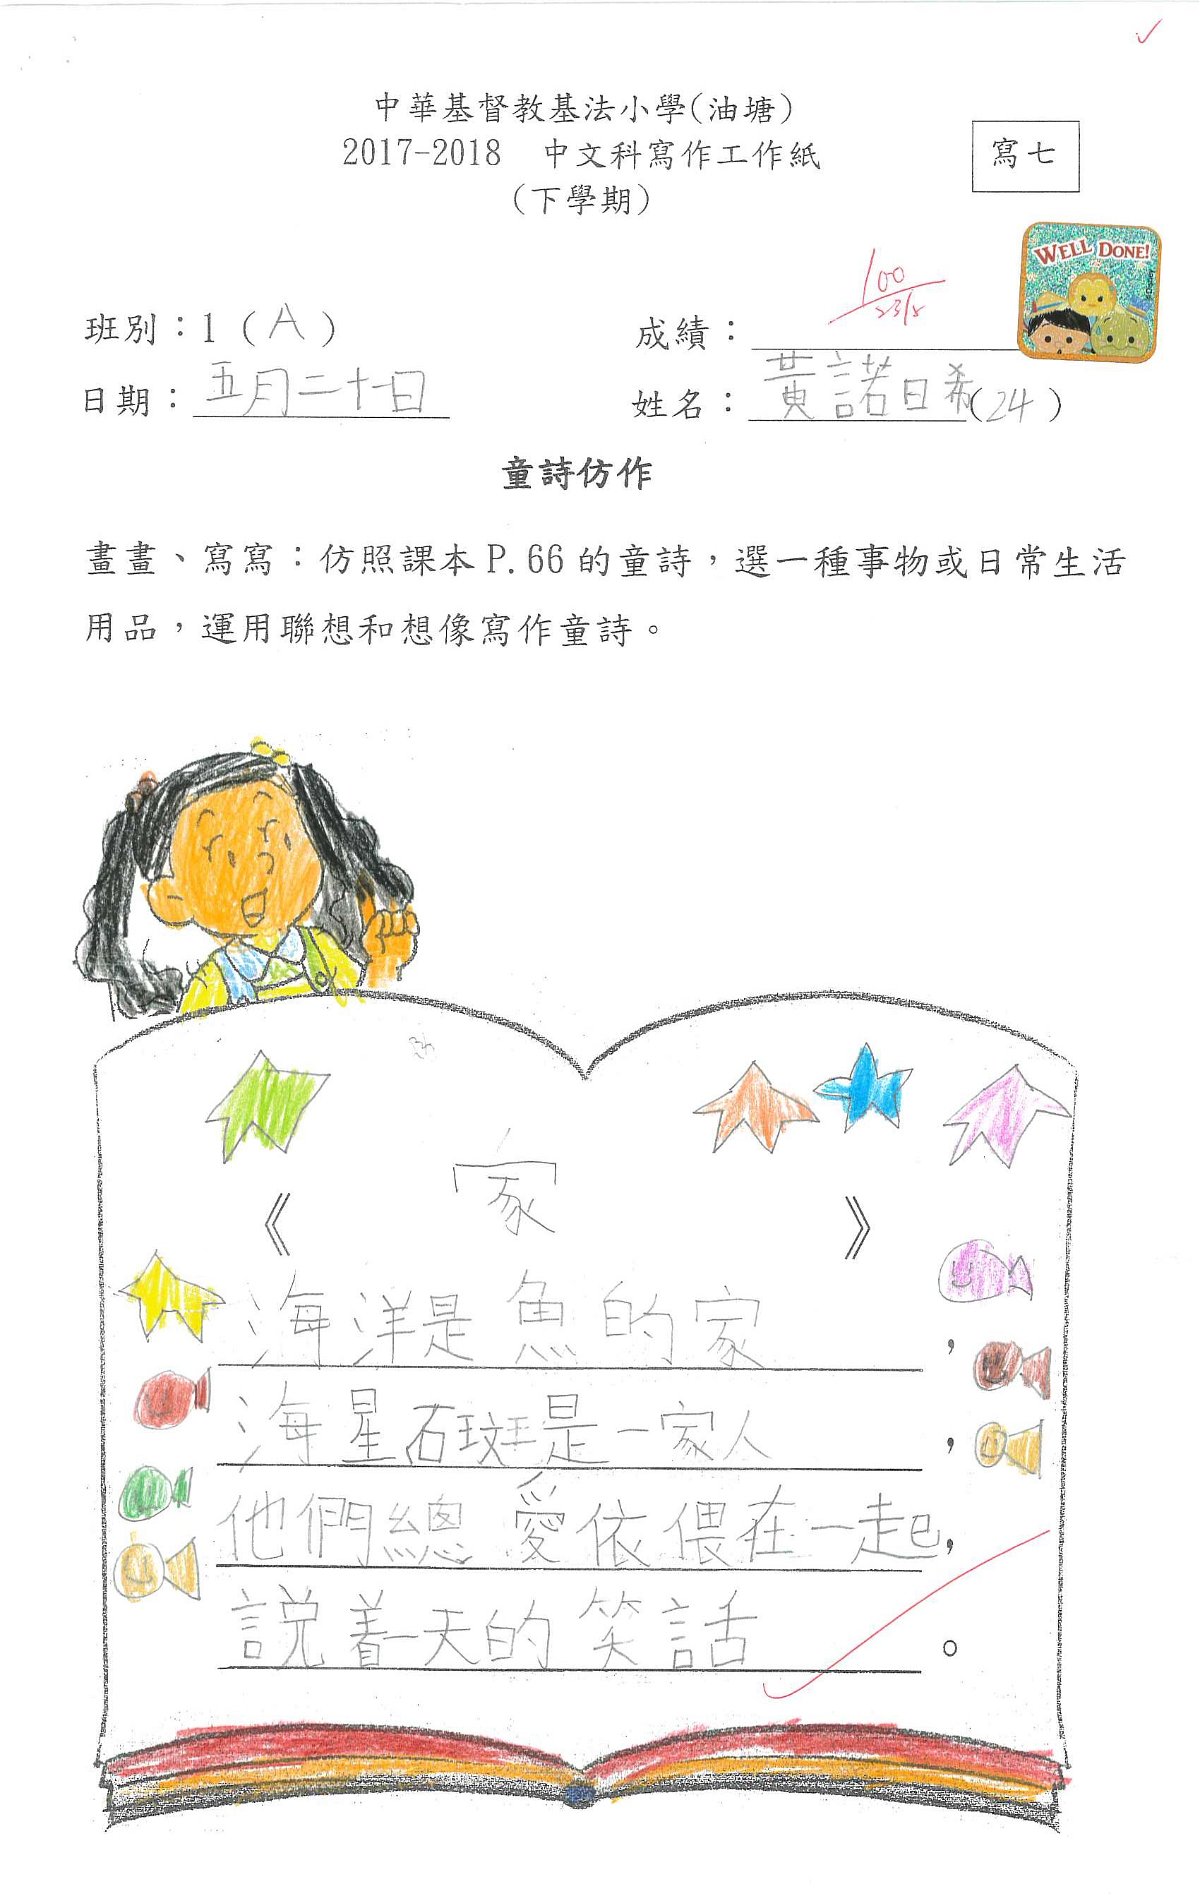 中華基督教基法小學(油塘)
2017-2018 中文科寫作工作紙
寫七
(下學期)
WELL DONE!
100
23/5
班別：1 (A)
成績：
日期：五月二十一日
姓名：黃諾晞(24)
童詩仿作
畫畫、寫寫：仿照課本P.66的童詩，選一種事物或日常生活
用品，運用聯想和想像寫作童詩。
《家》
海洋是魚的家，
海星石斑是一家人，
他們總愛依偎在一起，
説着一天的笑話。